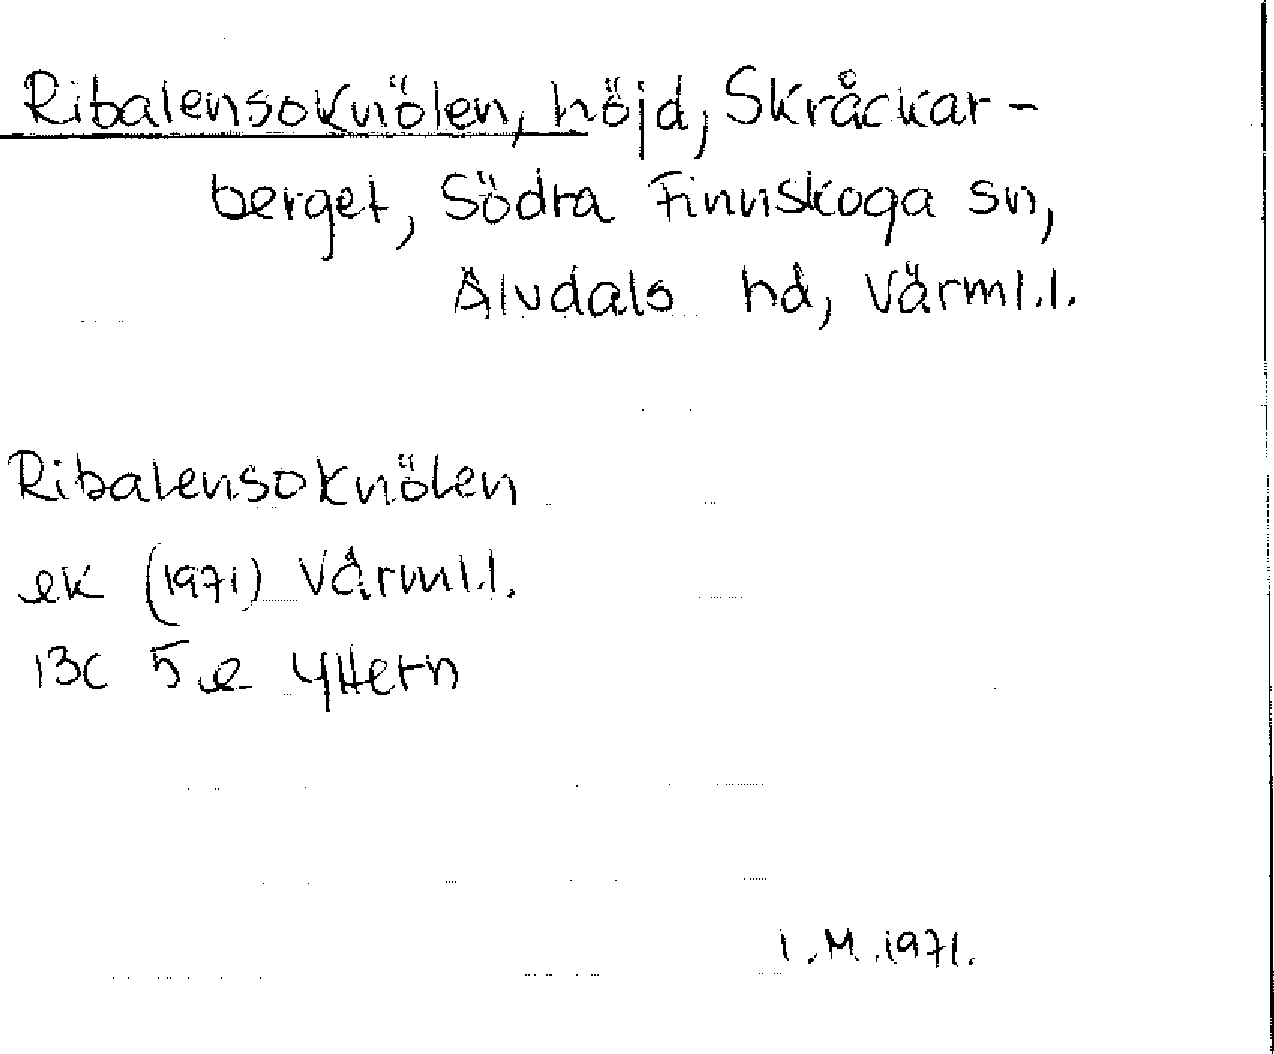 Ribalensoknölen, höjd, Skråckar-
berget, Södra Finnskoga sn,
Älvdals hd, Värml.l.
Ribalensoknölen
ek (1971) Värml.l.
13C 5e Yttern
I.M.1971.